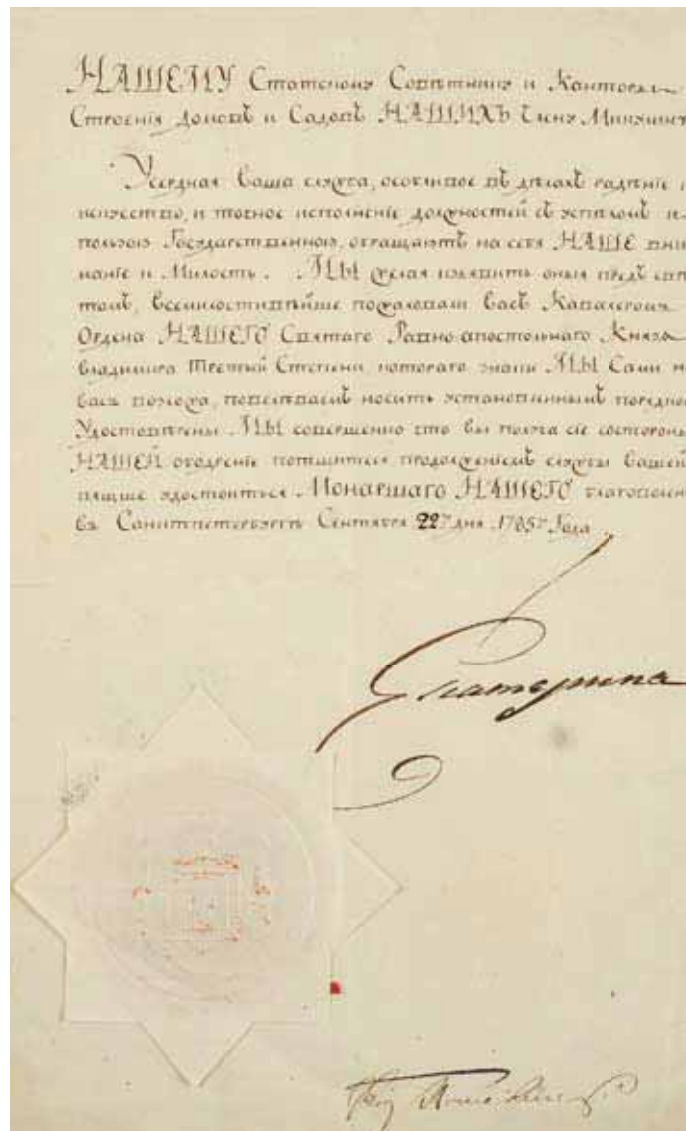 НАШЕМУ Статскому Совѣтнику и Канторы
Строенія Домовъ и Садовъ НАШИХЪ Члену
Усердная ваша служба, особливое въ дѣлахъ радѣніе
искусство, и точное исполненіе должностей съ успѣхомъ и
пользою Государственною, обращаютъ на себя НАШЕ вни
маніе и Милость. МЫ желая изъявить оныя предъ свѣ
томъ, всемилостивѣйше пожаловали васъ Кавалеромъ
Ордена НАШЕГО Святаго Равно-апостольнаго Князя
Владимира Третьей Степени, котораго знаки МЫ Сами на
васъ возложа, повелѣваемъ носить установленнымъ
Удостовѣрены МЫ совершенно что вы получа сіе состороны
НАШЕЙ ободреніе потщитеся продолженіемъ службы вашей
вящше удостоиться Монаршаго НАШЕГО
въ Санктпетербургѣ Сентября 22го дня 1785го Года
Екатерина